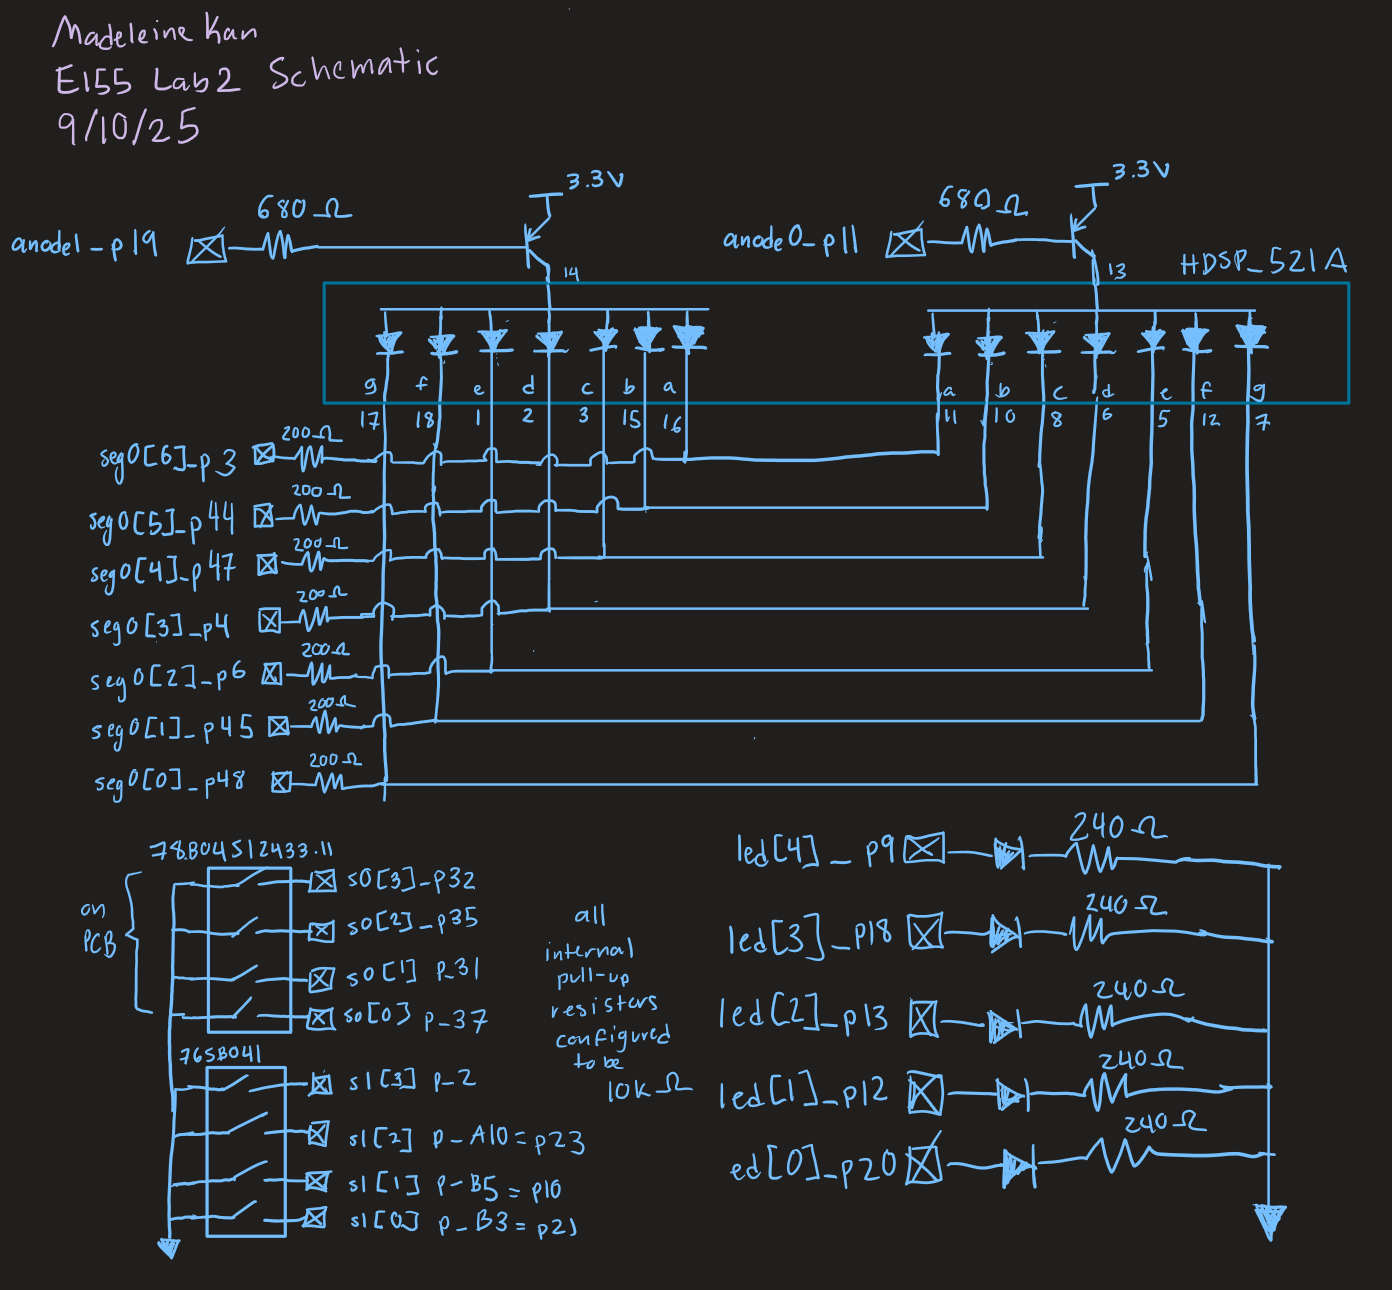 Madeleine Kan
E155 Lab2 Schematic
9/10/25
3.3V
680Ω
anode1_p19
14
3.3V
680Ω
anode0_p11
13
HDSP_521A
g f e d c b a
a b c d e f g
17 18 1 2 3 15 16
11 10 8 6 5 12 7
200Ω
seg0[6]_p3
200Ω
seg0[5]_p44
200Ω
seg0[4]_p47
200Ω
seg0[3]_p4
200Ω
seg0[2]_p6
200Ω
seg0[1]_p45
200Ω
seg0[0]_p48
78.B04S12433.11
on
PCB
s0[3]_p32
s0[2]_p35
s0[1] p_31
s0[0] p_37
76SB041
s1[3] p_2
s1[2] p_A10=p23
s1[1] p_B5=p10
s1[0] p_B3=p21
all
internal
pull-up
resistors
configured
to be
10kΩ
240Ω
led[4]_p9
240Ω
led[3]_p18
240Ω
led[2]_p13
240Ω
led[1]_p12
240Ω
ed[0]_p20